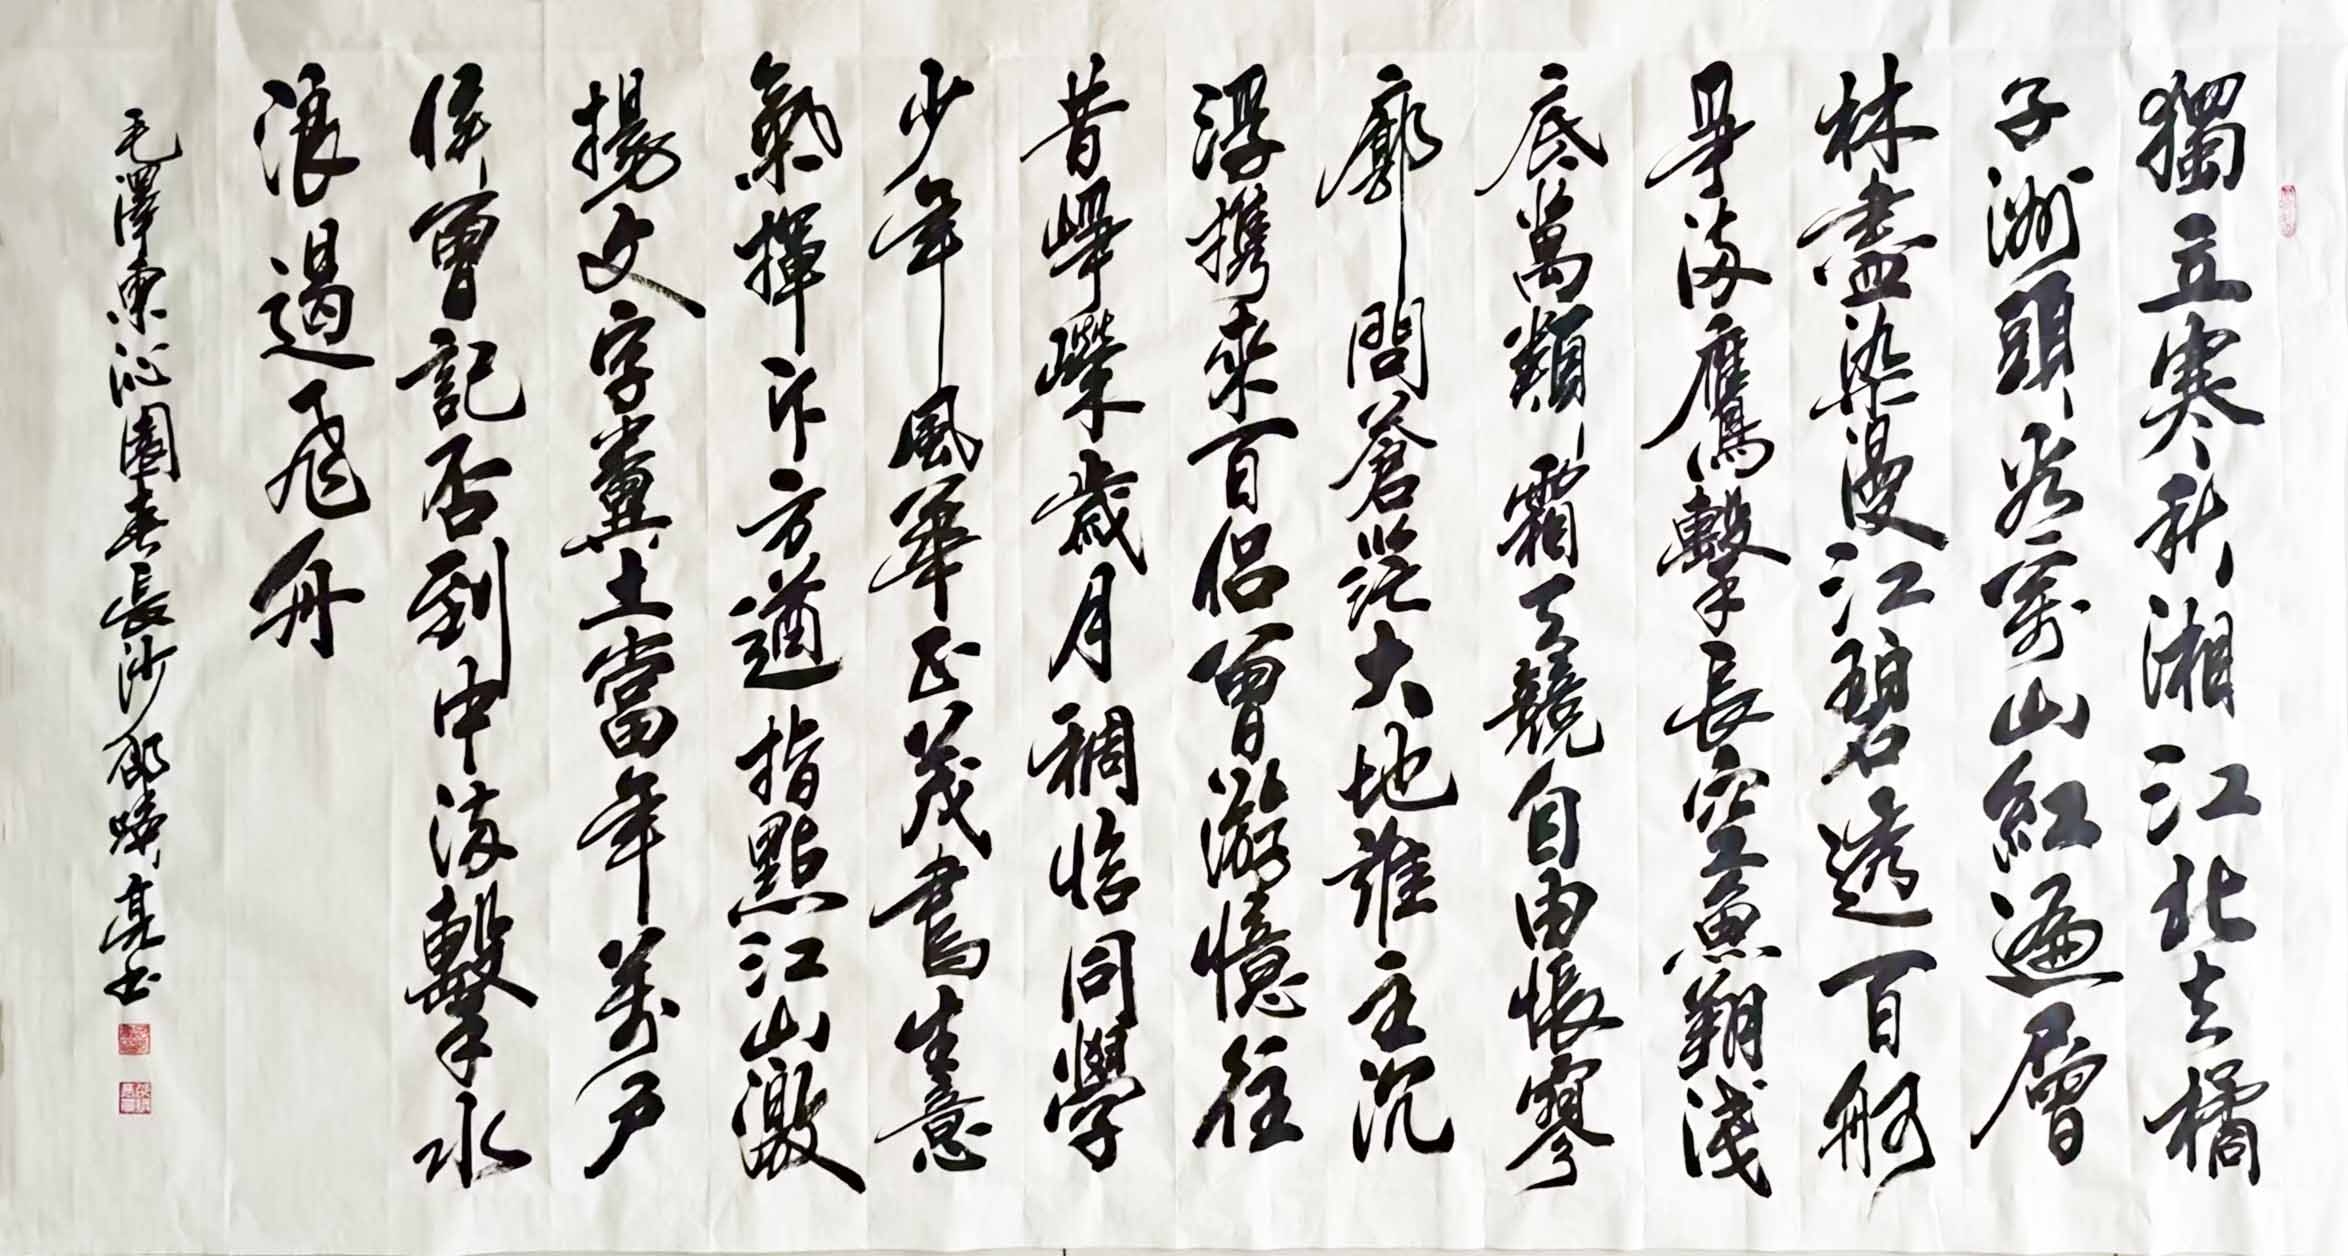 獨立寒秋湘江北去橘
子洲頭看萬山紅遍層
林盡染漫江碧透百舸
爭流鷹擊長空魚翔淺
底萬類霜天競自由悵寥
廓問蒼茫大地誰主沉
浮携來百侶曾游憶往
昔崢嶸歲月稠恰同學
少年風華正茂書生意
氣揮斥方遒指點江山激
揚文字糞土當年萬戶
侯曾記否到中流擊水
浪遏飛舟
毛澤東沁園春長沙邵亮书